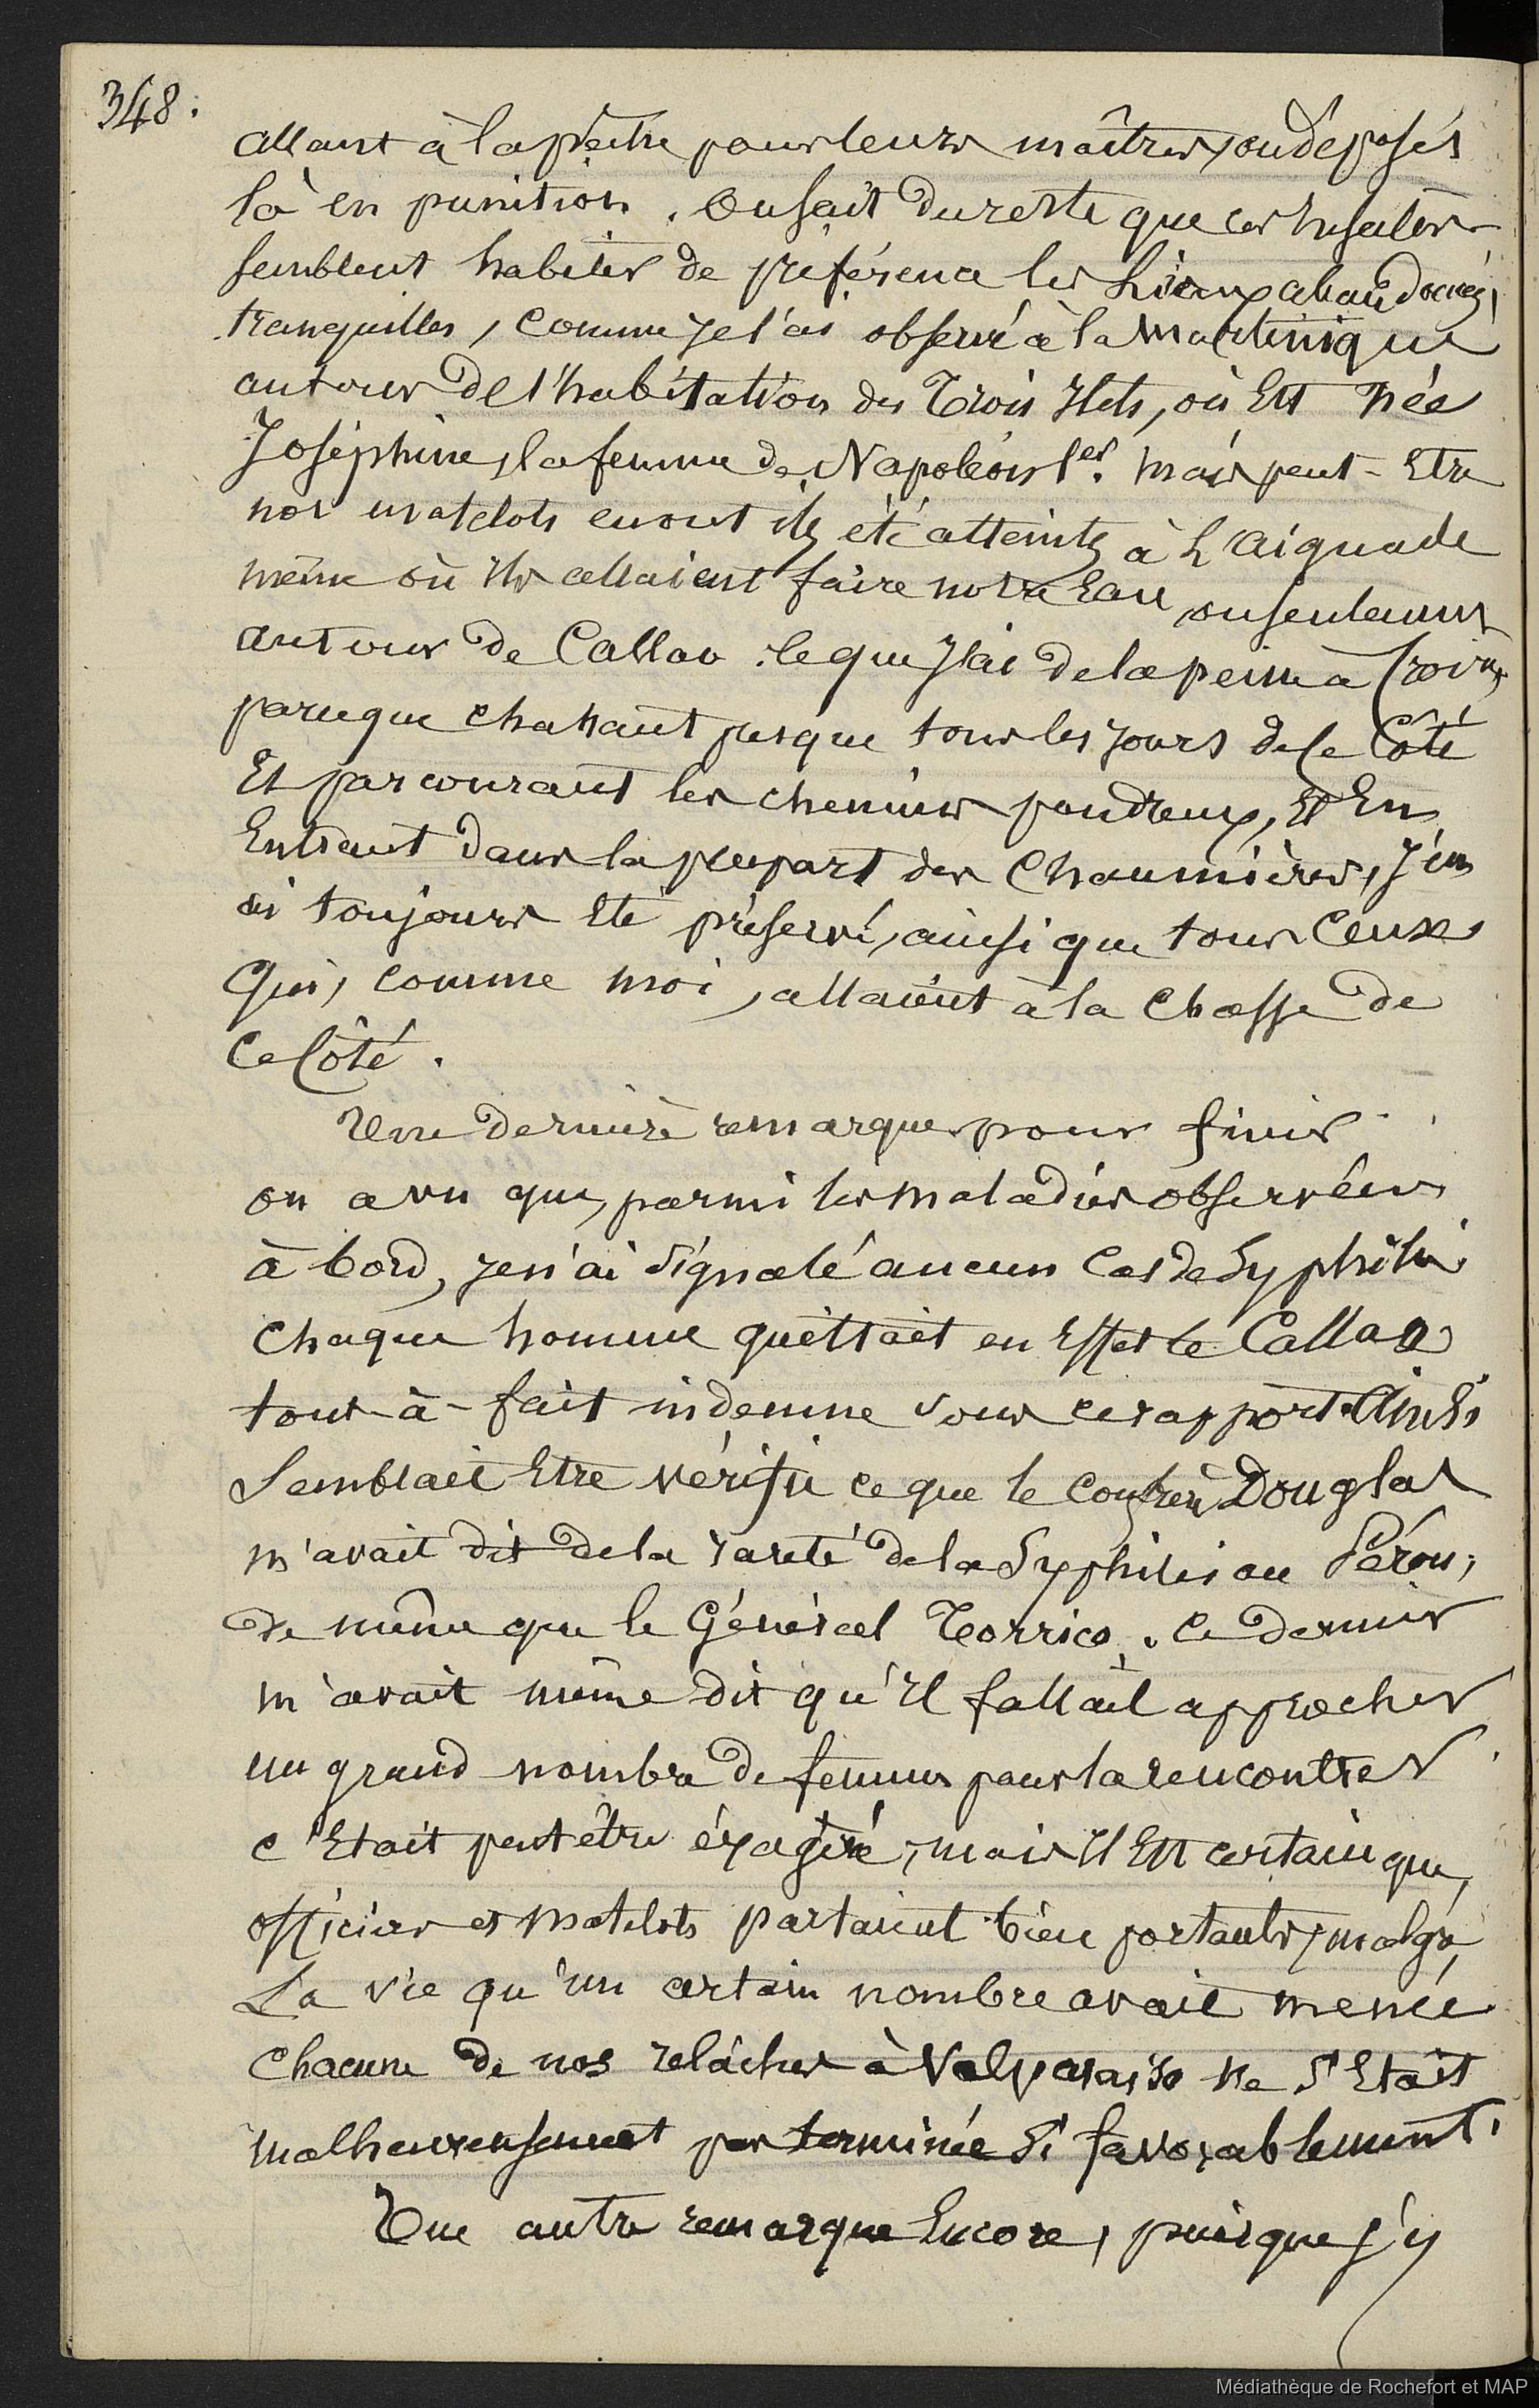 348.
allant à la pêche pour leurs maîtres, ou déposés
là en punition. On sait du reste que ces insectes
semblent habiter de préférence les Lieux abandonnés,
tranquilles, comme je l'ai observé à la Martinique
autour de l'habitation des Trois Ilets, où Est née
Joséphine, la femme de Napoléon 1er. Mais peut-Etre
nos matelots en ont ils été atteints à L'aiguade
même où ils allaient faire notre Eau ou seulement
autour de Callao. Ce que J'ai de la peine à Croire,
parceque chassant presque tous les jours de ce Côté
Et parcourant les chemins poudreux, Et En
Entrant dans la plupart des Chaumières, J'en
ai toujours Eté préservé, ainsi que tous Ceux
Qui, comme moi, allaient à la Chasse de
Ce Côté.
Une dernière remarque pour finir.
on a vu que, parmi les maladies observées
à bord, je n'ai signalé aucun Cas de Syphilis.
Chaque homme quittait en Effet le Callao
tout-à-fait indemne sous ce rapport. Ainsi
Semblait Etre vérifié ce que le confrère Douglas
m'avait dit de la rareté de la Syphilis au Pérou,
de même que le Général Torrico. Ce dernier
m'avait même dit qu'Il fallait approcher
un grand nombre de femmes pour la rencontrer.
c'Etait peut être éxagéré, mais Il Est certain que,
officiers et matelots partaient bien portants, malgré
La vie qu'un certain nombre avait menée
Chacune de nos relâches à Valparaiso ne s'Etait
malheureusement pas terminée si favorablement.
Une autre remarque Encore, puisque j'y
Médiathèque de Rochefort et MAP